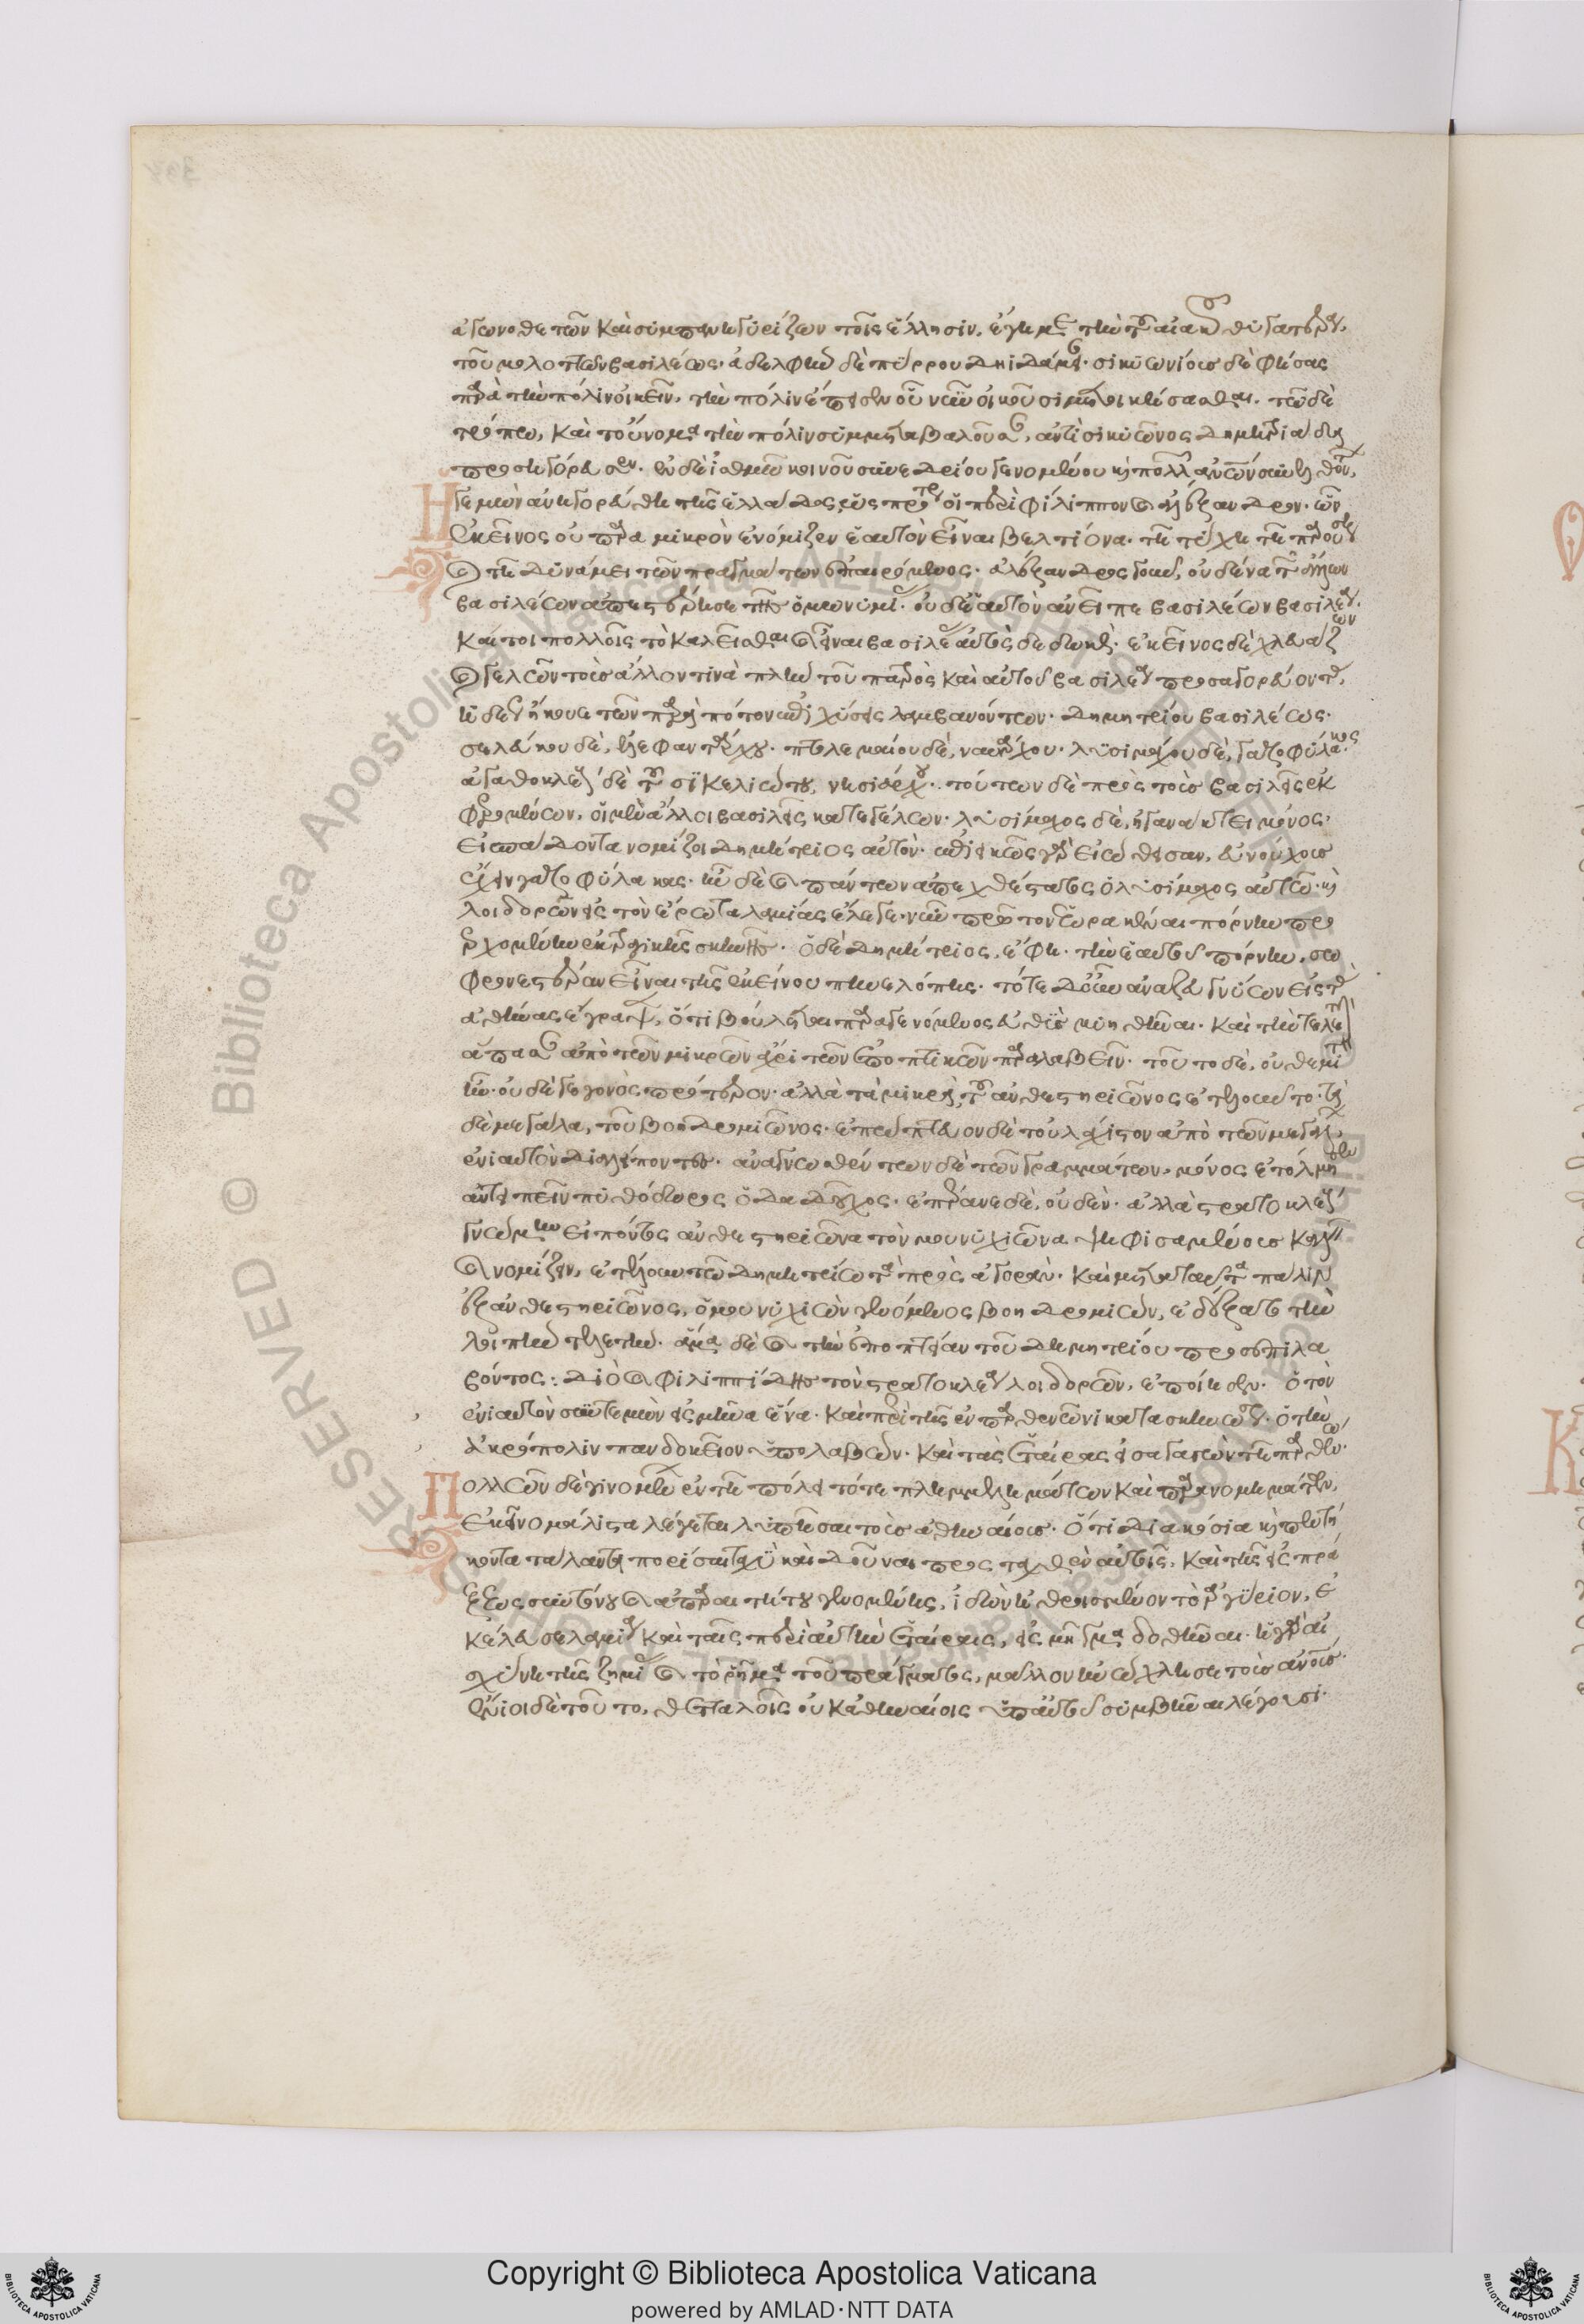 ἀγωνοθετῶν καὶ συμπανηγυρίζων τοῖς ἕλλησιν, ἔγημε τὴν τοῦ αἰακίδου θυγατέρα,
τοῦ μολοττῶν βασιλέως· ἀδελφὴν δὲ πύρρου Δηϊδάμειαν· σικυωνίοις δὲ φήσας
παρὰ τὴν πόλιν οἰκεῖν, τὴν πόλιν ἔπεισεν οὗ νῦν οἰκοῦσι μετοικήσασθαι. τῶ δὲ
τόπω, καὶ τοὔνομα τὴν πόλιν συμμεταβαλοῦσαν, ἀντὶ σικυῶνος Δημητριάδα
προσηγόρευσεν. ἐν δὲ ἰσθμῶ κοινοῦ συνεδρίου γενομένου καὶ πολλῶν ἀνθρώπων συνελθόντων,
Ηγεμὼν ἀνηγορεύθη τῆς ἑλλάδος, ὡς πρότερον οἱ περὶ φίλιππον καὶ ἀλέξανδρον. ὧν
ἐκεῖνος οὐ παρὰ μικρὸν ἐνόμιζεν ἑαυτὸν εἶναι βελτίονα. τῆ τύχη τῆ παρούση
καὶ τῆ Δυνάμει τῶν πραγμάτων ἐπαιρόμενος. ἀλέξανδρος γοῦν, οὐδένα τῶν ἄλλων
βασιλέων ἀπεστέρησε τῆς ὁμωνυμίας. οὐδὲ αὑτὸν ἀνεῖπε βασιλέων βασιλέα.
καί τοι πολλοῖς τὸ καλεῖσθαι καὶ εἶναι βασιλέας αὐτὸς δεδωκώς. ἐκεῖνος δὲ χλευάζων
καὶ γελῶν τοὺς ἄλλον τινὰ πλὴν τοῦ πατρὸς καὶ αὐτοῦ βασιλέα προσαγορεύοντας,
ἡδέως ἤκουε τῶν παρὰ πότον ἐπιχύσεις λαμβανόντων. Δημητρίου βασιλέως.
σελεύκου δὲ, ἐλεφαντάρχου. πτολεμαίου δὲ, ναυάρχου. λυσιμάχου δὲ, γαζοφύλακος.
ἀγαθοκλέους δὲ τοῦ σικελιώτου, νησιάρχου. τούτων δὲ πρὸς τοὺς βασιλεῖς ἐκ
φερομένων, οἱ μὲν ἄλλοι βασιλεῖς κατεγέλων. λυσίμαχος δὲ, ἠγανάκτει μόνος,
εἰ σπάδοντα νομίζοι Δημήτριος αὐτόν. ἐπιεικῶς γὰρ εἰώθεισαν, εὐνούχους
ἔχειν γαζοφύλακας. ἦν δὲ καὶ πάντων ἀπεχθέστατος ὁ λυσίμαχος αὐτῶ. καὶ
λοιδορῶν εἰς τὸν ἔρωτα λαμίας ἔλεγε. νῦν πρῶτον ἑωρακέναι πόρνην προ
ερχομένην ἐκ τραγικῆς σκηνῆς. ὁ δὲ Δημήτριος, ἔφη. τὴν ἑαυτοῦ πόρνην, σω
φρονεστέραν εἶναι τῆς ἐκείνου πηνελόπης. τότε δ' οὖν ἀναζευγνύων εἰς τὰς
ἀθήνας ἔγραψεν, ὅτι βούλεται παραγενόμενος εὐθὺς μυηθῆναι. καὶ τὴν τελετὴν
ἅπασαν ἀπὸ τῶν μικρῶν ἄχρι τῶν ἐποπτικῶν παραλαβεῖν. τοῦτο δὲ, οὐ θεμιτὸν
ἦν. οὐδὲ γεγονὸς πρότερον. ἀλλὰ τὰ μικρὰ, τοῦ ἀνθεστηριῶνος ἐτελοῦντο. τὰ
δὲ μεγάλα, τοῦ βοηδρομιῶνος. ἐπώπτευον δὲ τοὐλάχιστον ἀπὸ τῶν μεγάλων,
ἐνιαυτὸν διαλείποντες. ἀναγνωσθέντων δὲ τῶν γραμμάτων, μόνος ἐτόλμησεν
ἀντειπεῖν πυθόδωρος ὁ δαδοῦχος. ἐπέρανε δὲ, οὐδέν. ἀλλὰ στρατοκλέους
γνώμην εἰπόντος ἀνθεστηριῶνα τὸν μουνυχιῶνα ψηφισαμένους καλεῖν
καὶ νομίζειν, ἐτέλουν τῶ Δημητρίω τὰ πρὸς ἄγραν. καὶ μετὰ ταῦτα πάλιν
ἐξ ἀνθεστηριῶνος, ὁ μουνυχιὼν γενόμενος βοηδρομιὼν, ἐδέξατο τὴν
λοιπὴν τελετήν. ἅμα δὲ καὶ τὴν ἐποπτείαν τοῦ Δημητρίου προσεπιλα
βόντος: Διὸ καὶ φιλιππίδης τὸν στρατοκλέα λοιδορῶν, ἐποίησεν. ὁ τὸν
ἐνιαυτὸν συντεμὼν εἰς μῆνα ἕνα. καὶ περὶ τῆς ἐν παρθενῶνι κατασκηνώσεως. ὁ τὴν
ἀκρόπολιν πανδοκεῖον ὑπολαβών. καὶ τὰς ἑταίρας εἰσαγαγὼν τῆ παρθένω.
Πολλῶν δὲ γινομένων ἐν τῆ πόλει τότε πλημμελημάτων καὶ παρανομημάτων,
ἐκεῖνο μάλιστα λέγεται λυπῆσαι τοὺς ἀθηναίους. ὅτι διακόσια καὶ πεντή
κοντα τάλαντα πορίσαι ταχὺ καὶ δοῦναι προσταχθὲν αὐτοῖς, καὶ τῆς εἰσπρά
ξεως συντόνου καὶ ἀπαραιτήτου γενομένης, ἰδὼν ἠθροισμένον τὸ ἀργύριον, ἐ
κέλευσε λαμία καὶ ταῖς περὶ αὐτὴν ἑταίραις, εἰς σμῆγμα δοθῆναι. ἡ γὰρ αἰ
σχύνη τῆς ζημίας καὶ τὸ ῥῆμα τοῦ πράγματος, μᾶλλον ἠνώχλησε τοὺς ἀνθρώπους.
ἔνιοι δὲ τοῦτο, θετταλοῖς οὐκ ἀθηναίοις ὑπ' αὐτοῦ συμβῆναι λέγουσι.
Copyright © Biblioteca Apostolica Vaticana
powered by AMLAD·NTT DATA